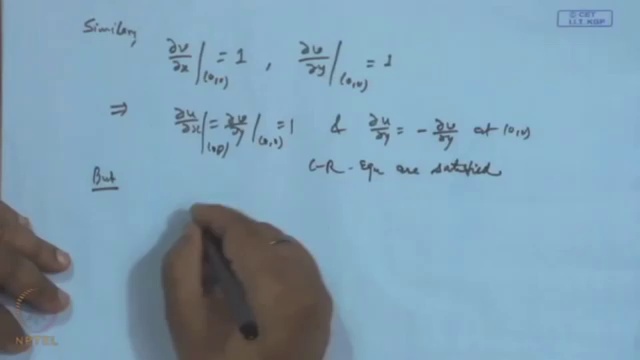 © CET
I.I.T. KGP
Similarly
∂v/∂x|(0,0) = 1 , ∂v/∂y|(0,0) = 1
⇒ ∂u/∂x|(0,0) = ∂v/∂y|(0,0) = 1 & ∂u/∂y = - ∂v/∂y at (0,0)
C-R - Equ are satisfied
But
NPTEL